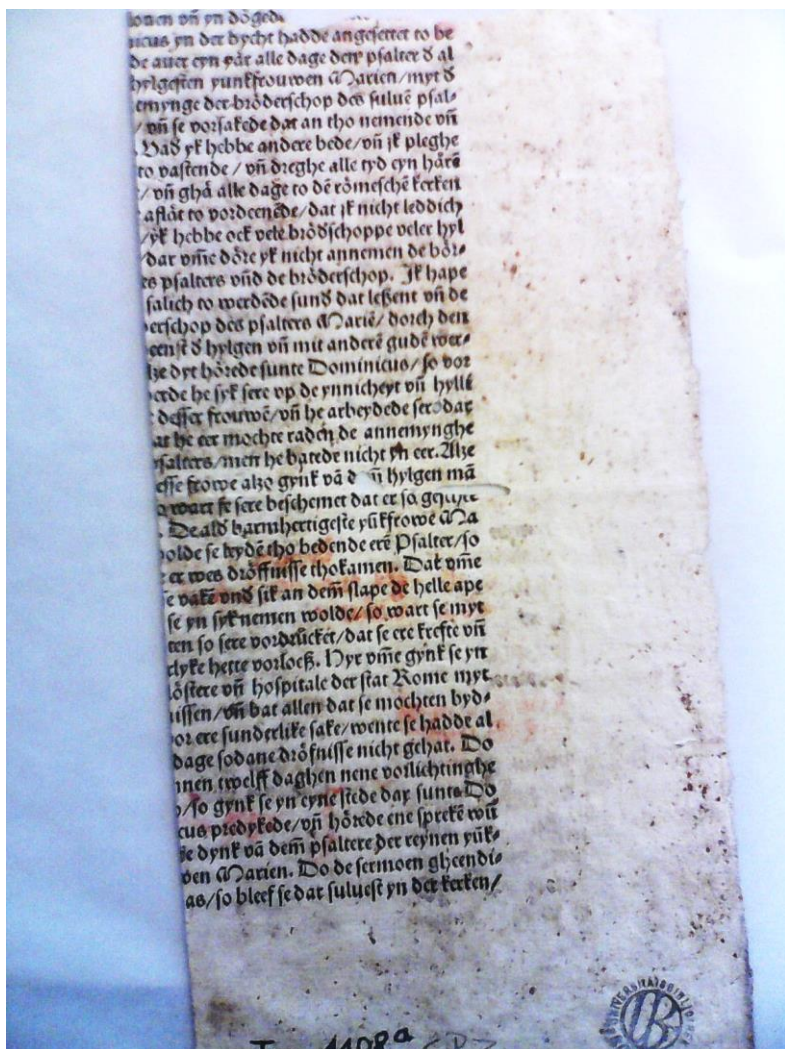 vñ yn dögede
nicus yn der bycht hadde angesettet to be
de auer eyn yår alle dage dem psalter đ al
hylgesten yunkfrouwen Marien/myt đ
emynge der bröderschop des suluē psal-
/vñ se vorsakede dat an tho nemende vñ
yk hebbe andere bede/vñ jk pleghe
to vastende/vñ dreghe alle tyd eyn hårē
/vñ ghå alle dage to dē römeschē kerken
aflåt to vordeenēde/dat jk nicht leddich
/yk hebbe ock vele brödschoppe veler hyl
/dar vm̄e döre yk nicht annemen de bör-
es psalters vñd de bröderschop. Jk hape
salich to werdēde sunđ dat leßent vñ de
erschop des psalters Mariē/dorch den
eenst đ hylgen vñ mit anderē gudē wer-
dyt hörede sunte Dominicus/so vor
erde he syk sere vp de ynnicheyt vñ hylli
desser frouwē/vñ he arbeydede sere dar
at he eer mochte raden de annemynghe
psalters/men he batede nicht yn eer. Alze
esse frowe alzo gynk vā hylgen mā
wart se sere beschemet dat er so
De alđ barmhertigeste yūkfrowe Ma
olde se leydē tho bedende erē Psalter/so
er wes dröffnisse thokamen. Dat vm̄e
e vakē vnđ sik an dem slape de helle ape
se yn syk nemen wolde/so wart se myt
ten so sere vordrücket/dat se ere krefte vñ
lyke hette vorloeß. Hyr vm̄e gynk se yn
löstere vñ hospitale der stat Rome myt
nissen/vñ bat allen dat se mochten byd-
vor ere sunderlike sake/wente se hadde al
dage sodane dröfnisse nicht gehat. Do
nnen twelff daghen nene vorlichtinghe
/so gynk se yn eyne stede dar sunte Do
cus predykede/vñ hörede ene sprekē wū
dynk vā dem psaltere der reynen yūk-
wen Marien. Do de sermoen gheendi-
as/so bleef se dar suluest yn der kerken/